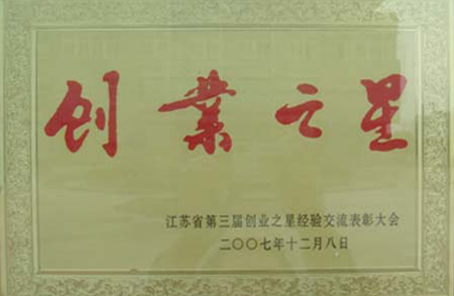 创業之星
江苏省第三届创业之星经验交流表彰大会
二〇〇七年十二月八日